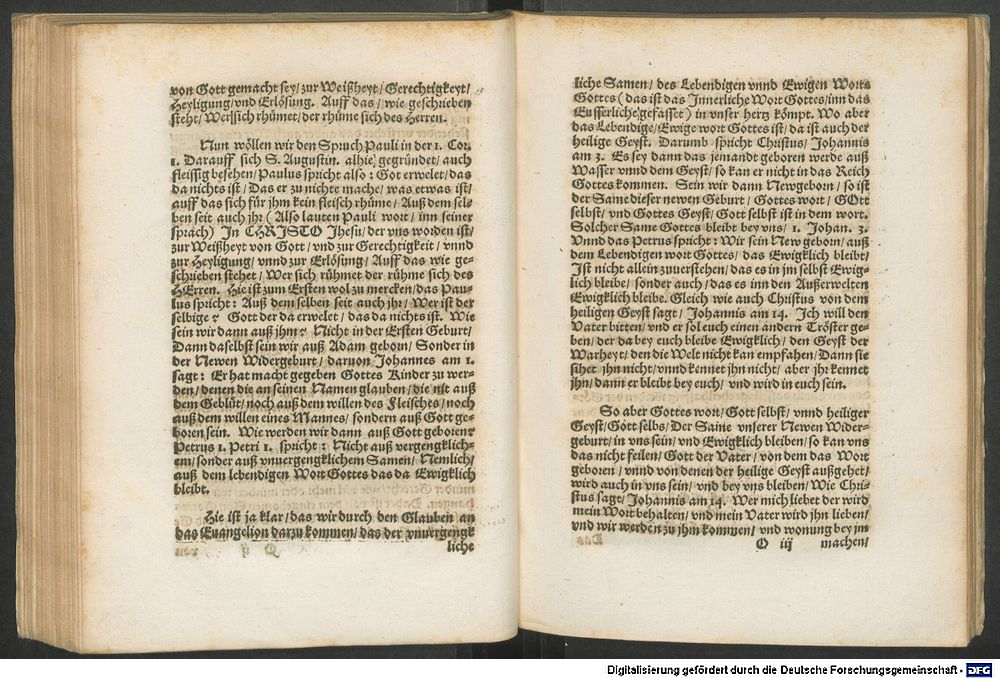 von Gott gemacht sey/ zur Weißheyt/ Gerechtigkeyt/
Heyligung/ vnd Erlösung. Auff das/ wie geschrieben
steht/ Wer sich rhümet/ der rhüme sich des Herren.
Nun wöllen wir den Spruch Pauli in der 1. Cor.
1. Darauff sich S. Augustin. alhie gegründet/ auch
fleissig besehen/ Paulus spricht also: Got erwelet/ das
da nichts ist/ Das er zu nichte mache/ was etwas ist/
auff das sich für jhm kein fleisch rhüme/ Auß dem sel-
ben seit auch jhr (Also lauten Pauli wort/ inn seiner
sprach) In CHRISTO Jhesu/ der vns worden ist/
zur Weißheyt von Gott/ vnd zur Gerechtigkeit/ vnnd
zur Heyligung/ vnnd zur Erlösung/ Auff das wie ge-
schrieben stehet/ Wer sich rühmet der rühme sich des
HErren. Hie ist zum Ersten wol zu mercken/ das Pau-
lus spricht: Auß dem selben seit auch jhr/ Wer ist der
selbige? Gott der da erwelet/ das da nichts ist. Wie
sein wir dann auß jhm? Nicht in der Ersten Geburt/
Dann daselbst sein wir auß Adam geborn/ Sonder in
der Newen Widergeburt/ daruon Johannes am 1.
sagt: Er hat macht gegeben Gottes Kinder zu wer-
den/ denen die an seinen Namen glauben/ die nit auß
dem Geblüt/ noch auß dem willen des Fleisches/ noch
auß dem willen eines Mannes/ sondern auß Gott ge-
boren sein. Wie werden wir dann auß Gott geboren?
Petrus 1. Petri 1. spricht: Nicht auß vergengklich-
em/ sonder auß vnuergengklichem Samen/ Nemlich/
auß dem lebendigen Wort Gottes das da Ewigklich
bleibt.
Hie ist ja klar/ das wir durch den Glauben an
das Euangelion darzu kommen/ das der vnuergengk
liche
liche Samen/ des Lebendigen vnnd Ewigen Worts
Gottes (das ist das Innerliche Wort Gottes/ inn das
Eusserliche gefasset) in vnser hertz kömpt. Wo aber
das Lebendige/ Ewige wort Gottes ist/ da ist auch der
heilige Geyst. Darumb spricht Christus/ Johannis
am 3. Es sey dann das jemandt geboren werde auß
Wasser vnnd dem Geyst/ so kan er nicht in das Reich
Gottes kommen. Sein wir dann Newgeborn/ so ist
der Same dieser newen Geburt/ Gottes wort/ GOtt
selbst/ vnd Gottes Geyst/ Gott selbst ist in dem wort.
Solcher Same Gottes bleibt bey vns/ 1. Johan. 3.
Vnnd das Petrus spricht: Wir sein New geborn/ auß
dem Lebendigen wort Gottes/ das Ewigklich bleibt/
Ist nicht allein zuuerstehen/ das es in jm selbst Ewig-
lich bleibe/ sonder auch/ das es inn den Außerwelten
Ewigklich bleibe. Gleich wie auch Christus von dem
heiligen Geyst sagt/ Johannis am 14. Ich will den
Vater bitten/ vnd er sol euch einen andern Tröster ge-
ben/ der da bey euch bleibe Ewigklich/ den Geyst der
Warheyt/ den die Welt nicht kan empfahen/ Dann sie
sihet jhn nicht/ vnnd kennet jhn nicht/ aber jhr kennet
jhn/ dann er bleibt bey euch/ vnd wird in euch sein.
So aber Gottes wort/ Gott selbst/ vnnd heiliger
Geyst/ Gott selbs/ Der Same vnserer Newen Wider-
geburt/ in vns sein/ vnd Ewigklich bleiben/ so kan vns
das nicht feilen/ Gott der Vater/ von dem das Wort
geboren/ vnnd von denen der heilige Geyst außgehet/
wird auch in vns sein/ vnd bey vns bleiben/ Wie Chri-
stus sagt/ Johannis am 14. Wer mich liebet der wird
mein Wort behalten/ vnd mein Vater wird jhn lieben/
vnd wir werden zu jhm kommen/ vnd wonung bey jm
O iij machen/
Digitalisierung gefördert durch die Deutsche Forschungsgemeinschaft - DFG